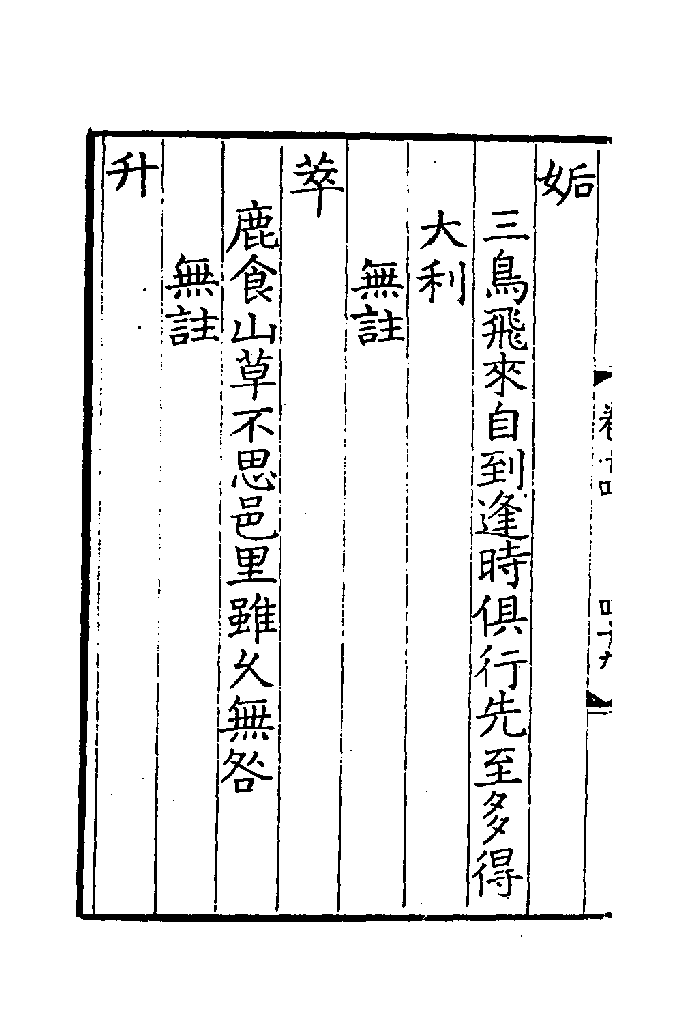 姤
三鳥飛來自到逢時俱行先至多得
大利
無註
萃
鹿食山草不思邑里雖久無咎
無註
升